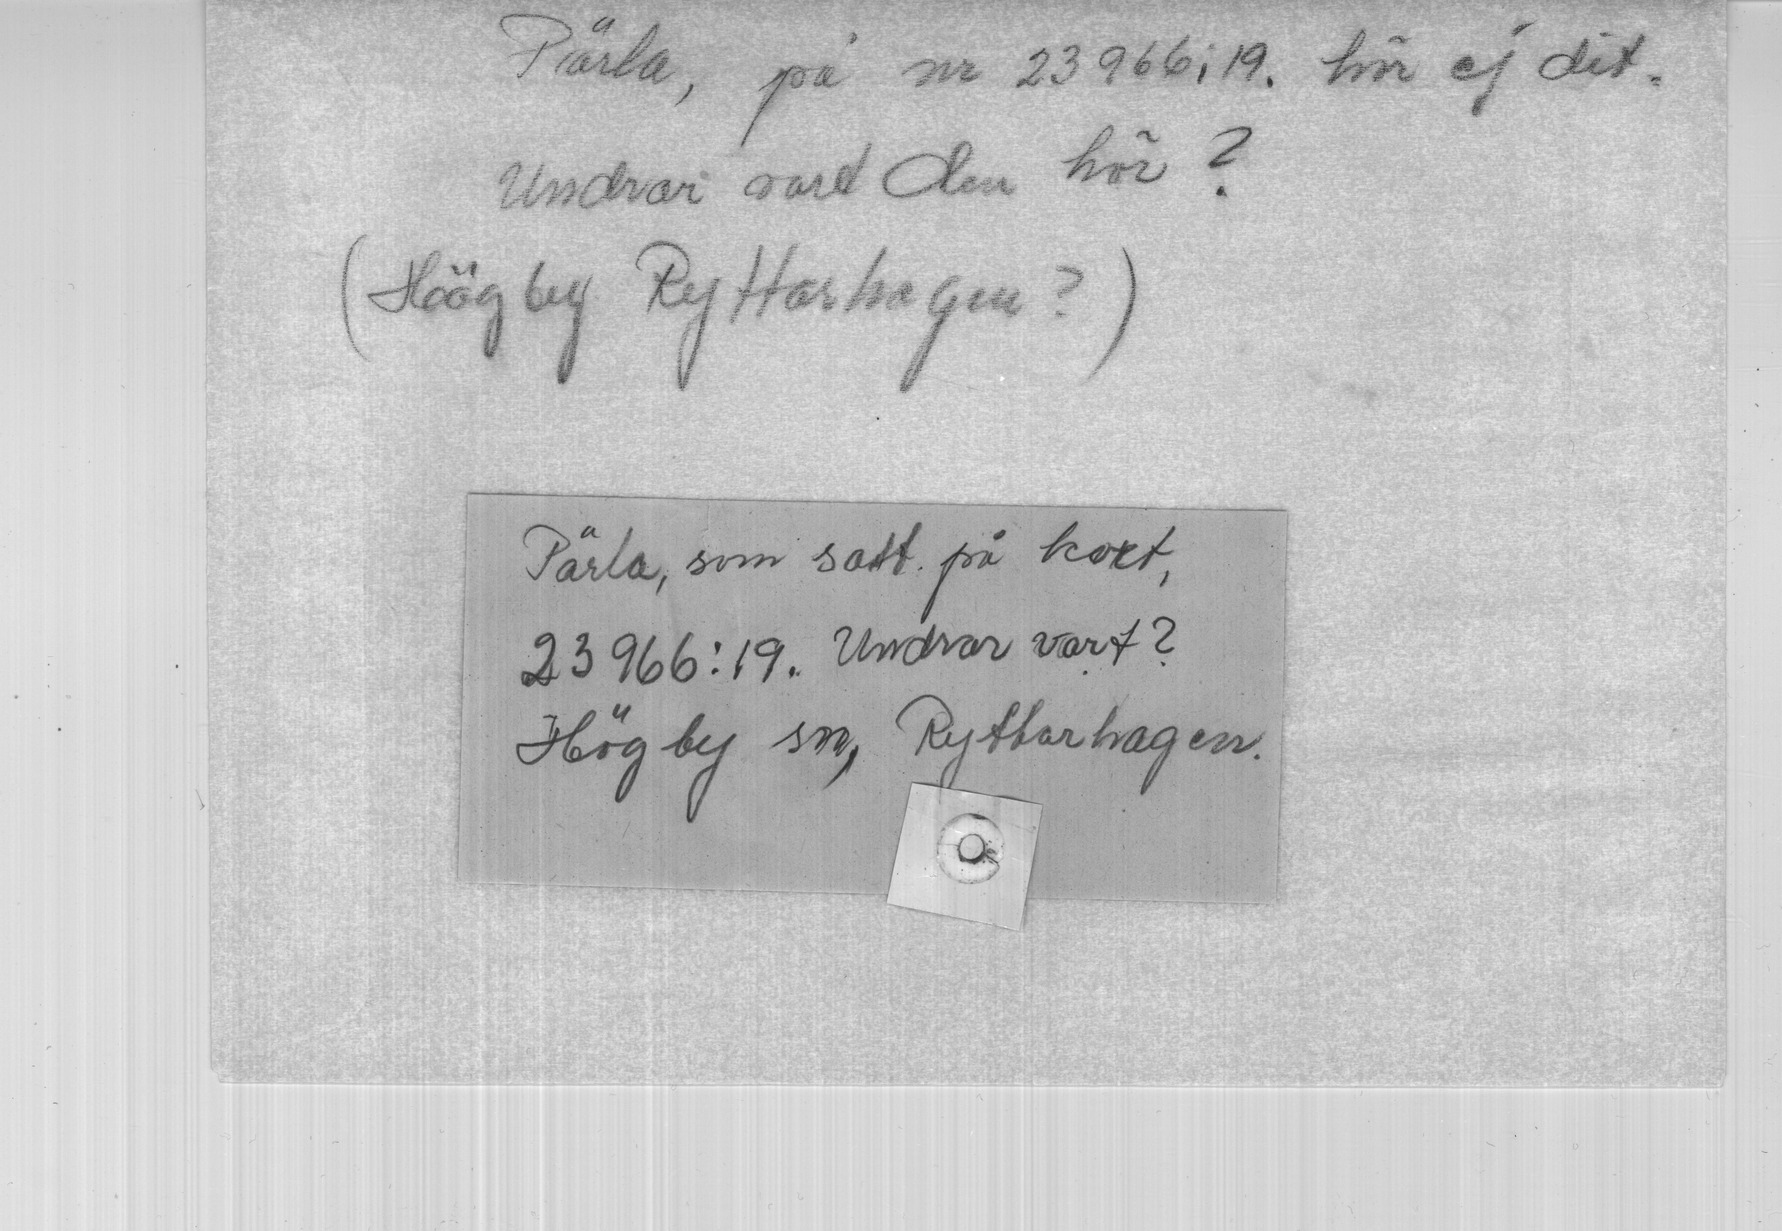 Pärla, på nr 23966:19. hör ej dit.
Undrar vart den hör?
(Högby Ryttarhagen?)
Pärla, som satt på kort,
23966:19. Undrar vart?
Högby sn, Ryttarhagen.